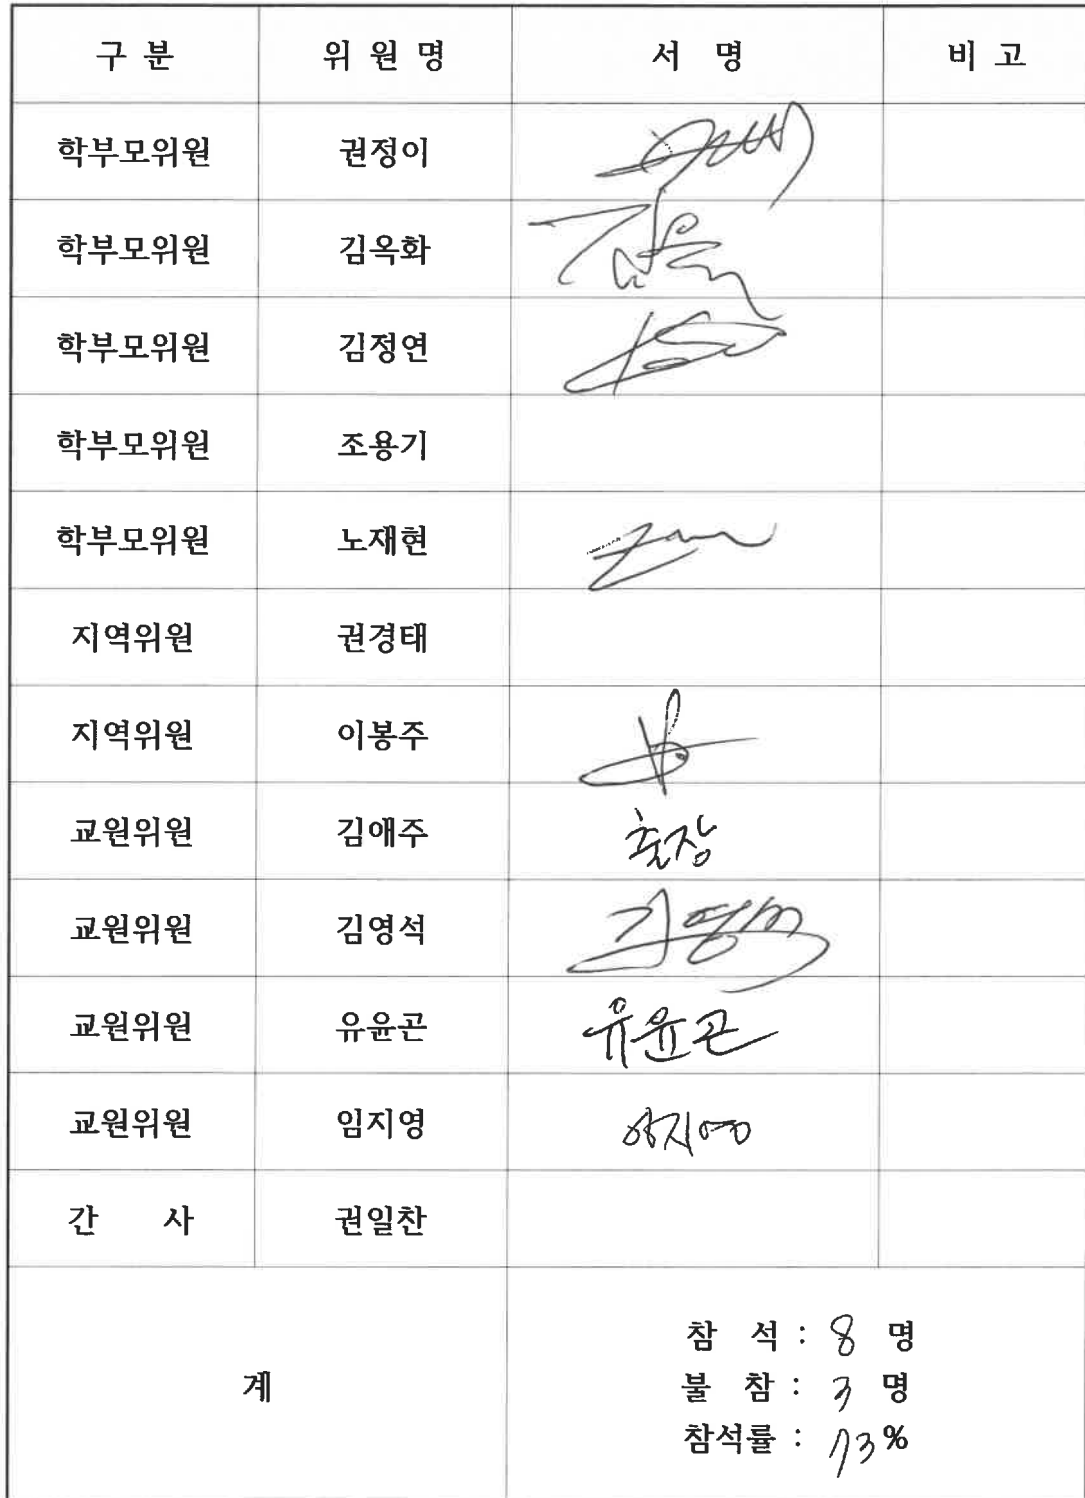 구 분 위 원 명 서 명 비 고
학부모위원 권정이
학부모위원 김옥화
학부모위원 김정연
학부모위원 조용기
학부모위원 노재현
지역위원 권경태
지역위원 이봉주
교원위원 김애주 출장
교원위원 김영석 김영석
교원위원 유윤곤 유윤곤
교원위원 임지영 임지영
간 사 권일찬
계
참 석 : 8 명
불 참 : 3 명
참석률 : 73%